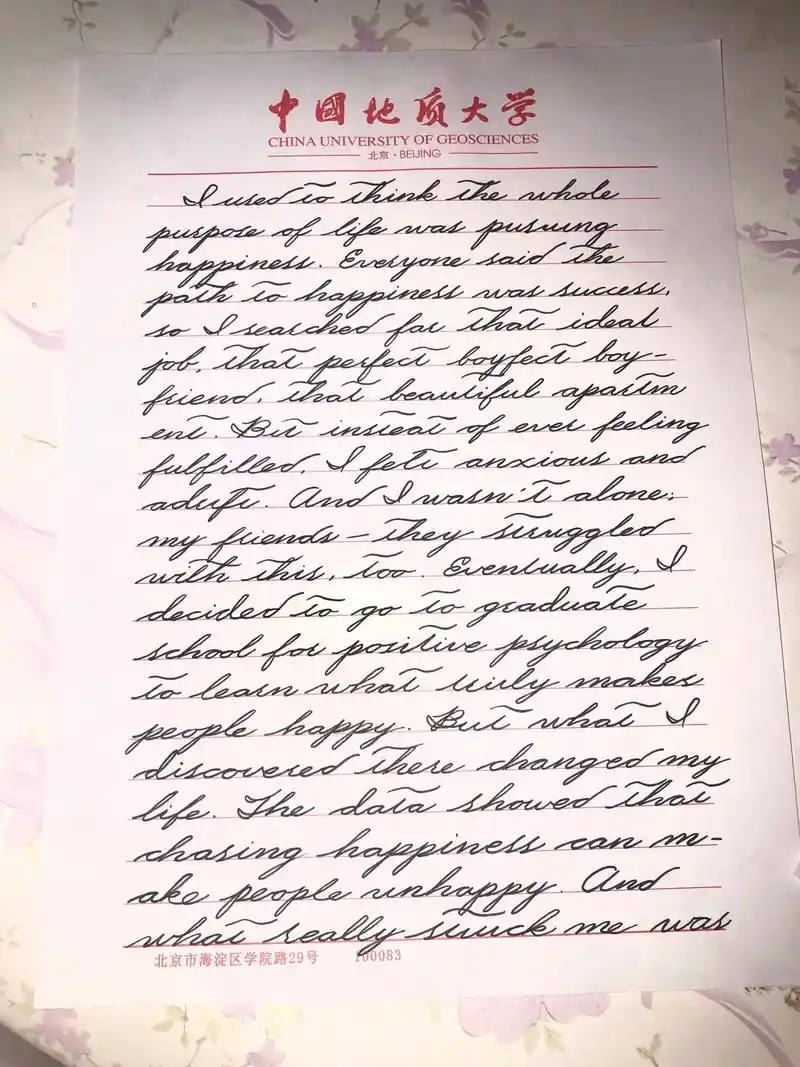 中國地质大学
CHINA UNIVERSITY OF GEOSCIENCES
北京·BEIJING
I used to think the whole
purpose of life was pursuing
happiness. Everyone said the
path to happiness was success,
so I searched for that ideal
job, that perfect boyfect boy-
friend, that beautiful apartm
ent. But insteat of ever feeling
fulfilled, I felt anxious and
adift. And I wasn't alone;
my friends - they struggled
with this, too. Eventually, I
decided to go to graduate
school for positive psychology
to learn what truly makes
people happy. But what I
discovered there changed my
life. The data showed that
chasing happiness can m-
ake people unhappy. And
what really struck me was
北京市海淀区学院路29号 100083